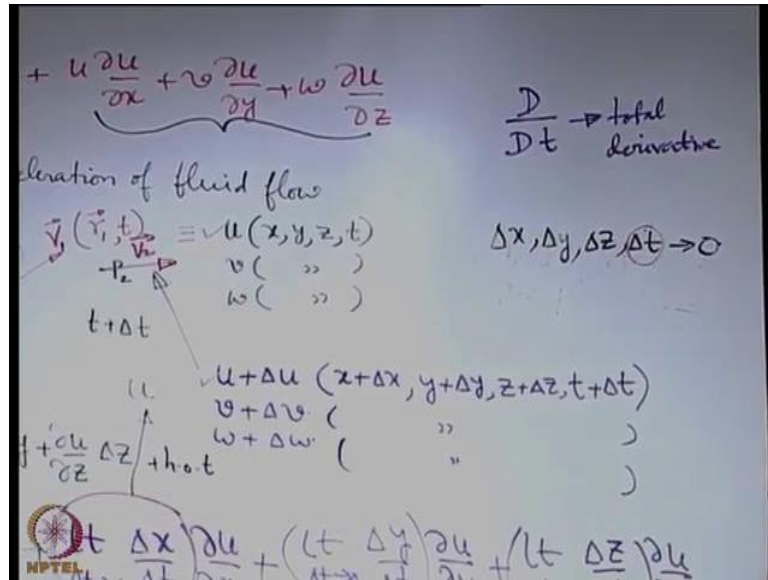 + u ∂u/∂x + v ∂u/∂y + w ∂u/∂z
D/Dt → total derivative
leration of fluid flow
V⃗₁ (r⃗₁, t) ≡ u (x, y, z, t)
V⃗₂
P₂
v ( ,, )
w ( ,, )
Δx, Δy, Δz, Δt → 0
t + Δt
u
u + Δu (x+Δx, y+Δy, z+Δz, t+Δt)
v + Δv ( ,, )
w + Δw ( ,, )
+ ∂u/∂z Δz + h.o.t
lt Δx ∂u + (lt Δy) ∂u + (lt Δz) ∂u
NPTEL